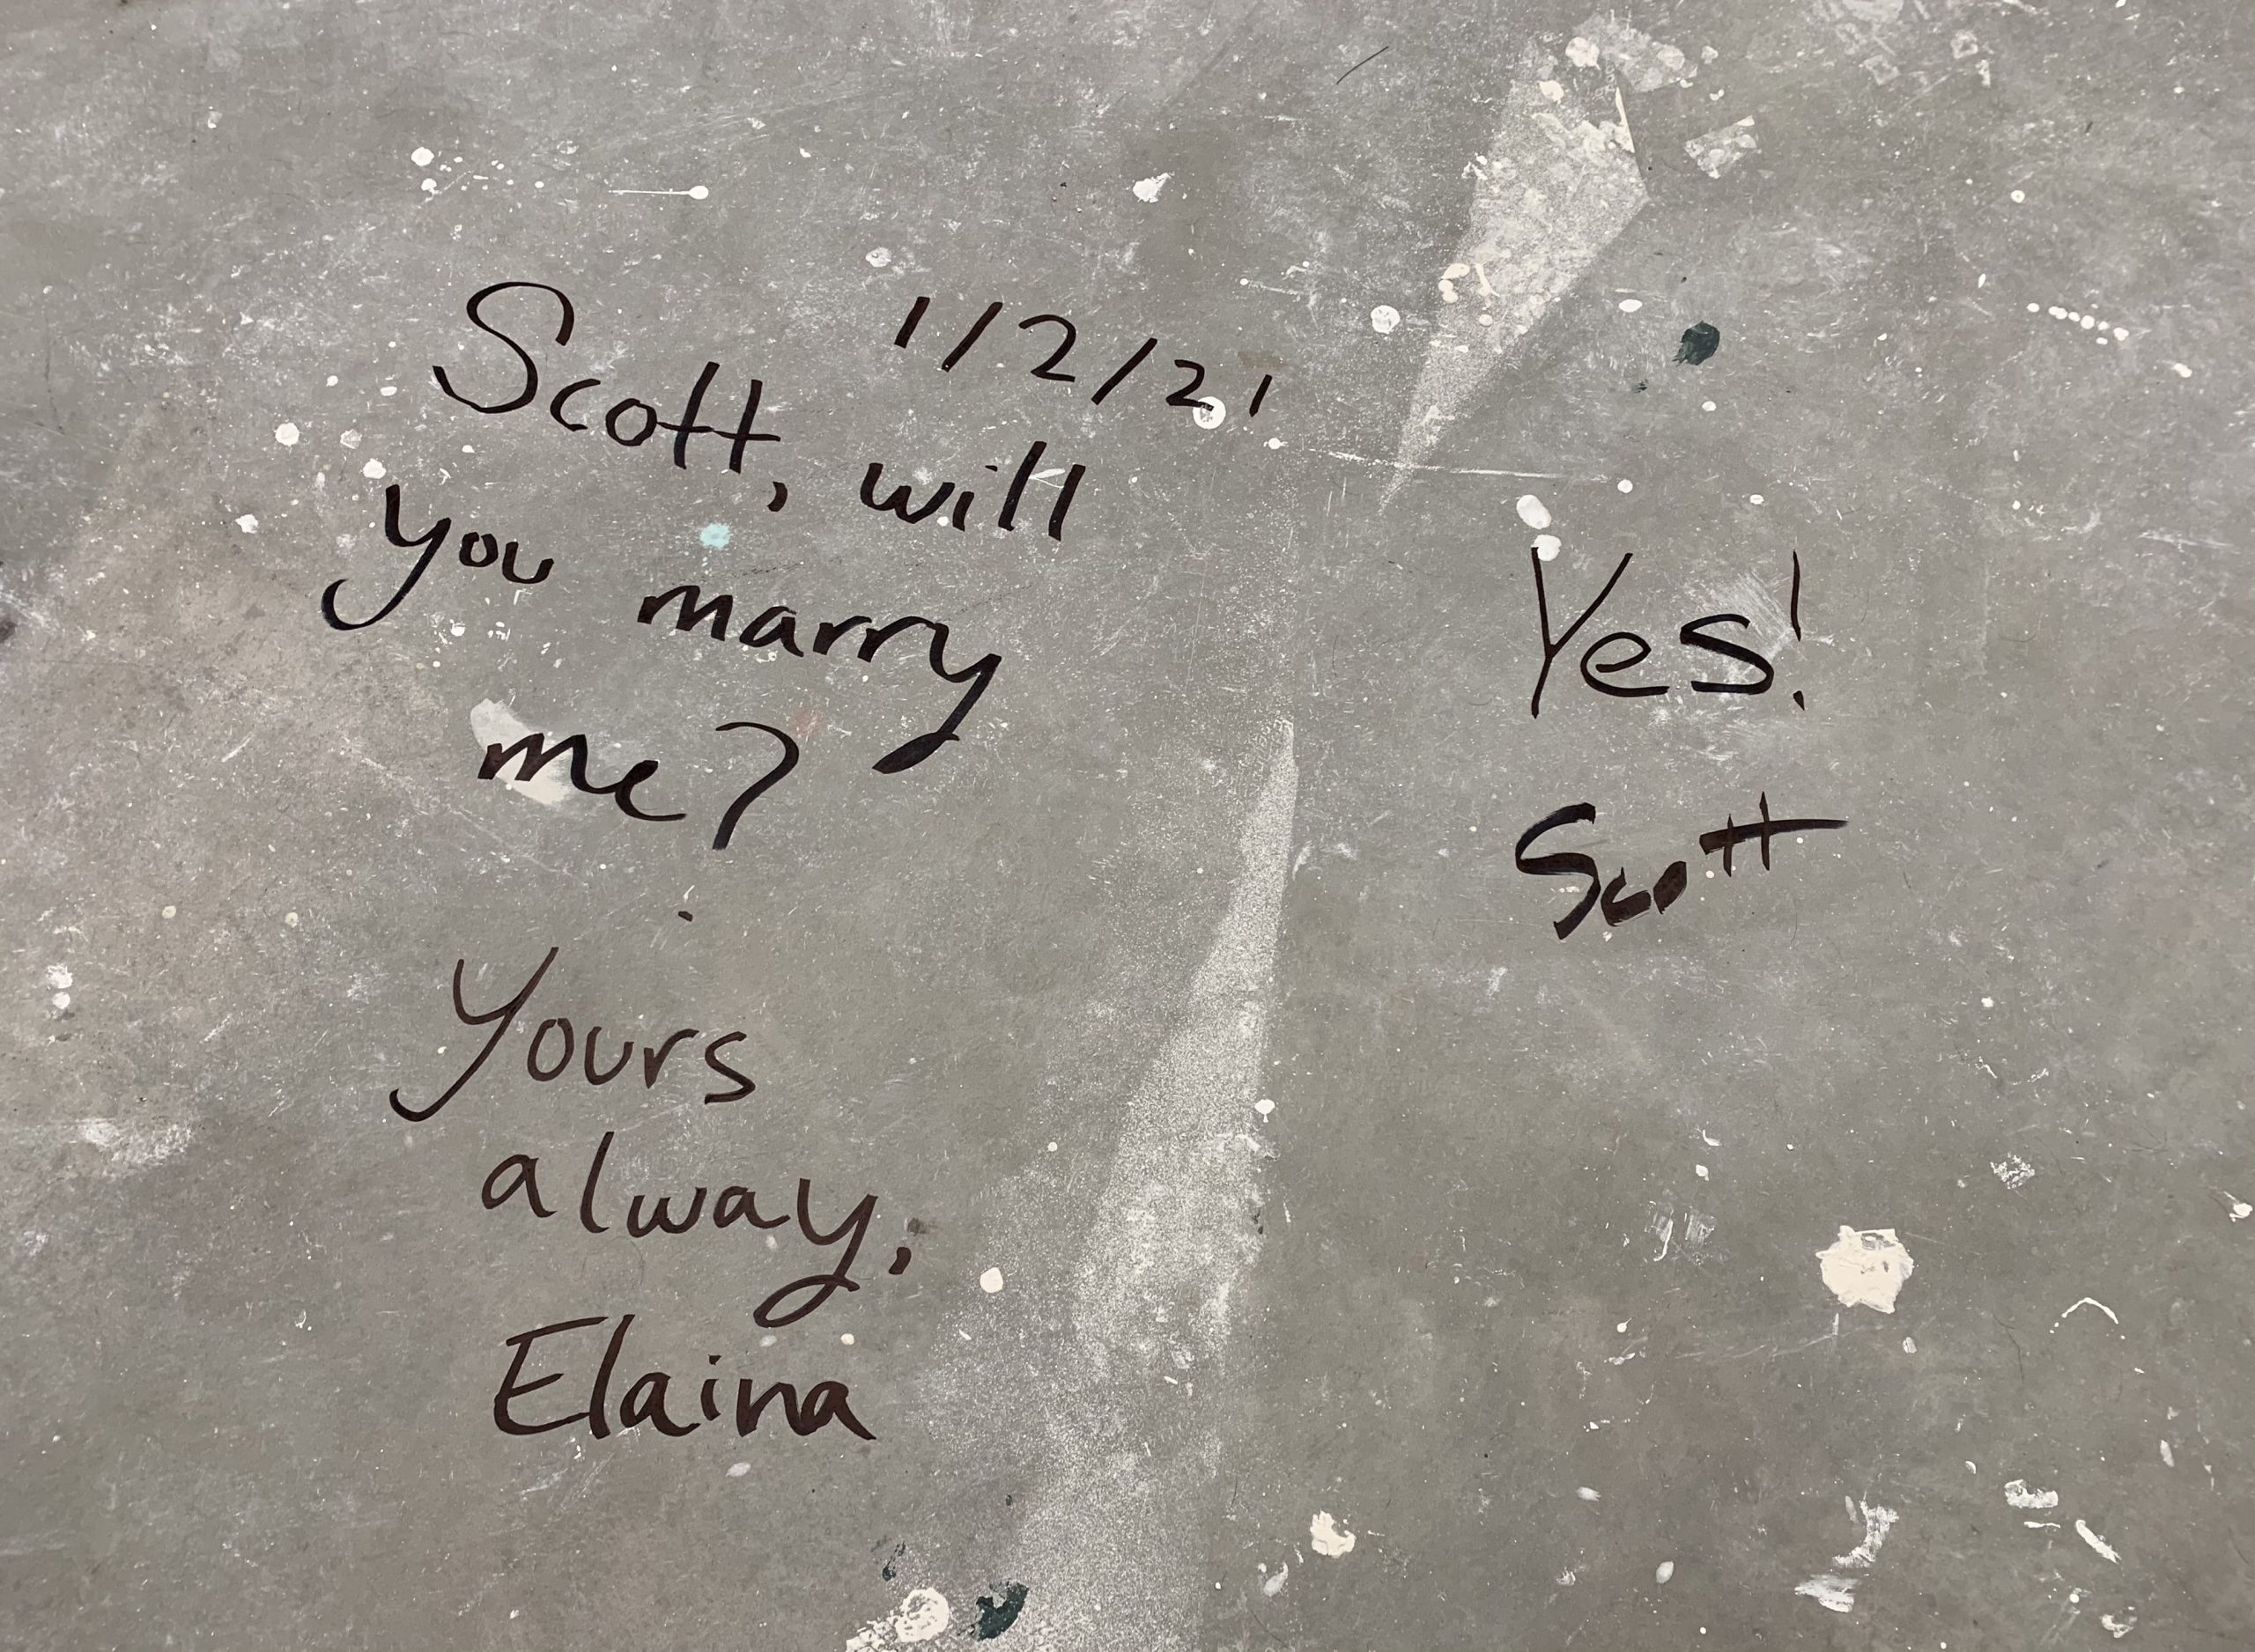 1/2/21
Scott, will
you marry
me?
Yours
alway,
Elaina
Yes!
Scott